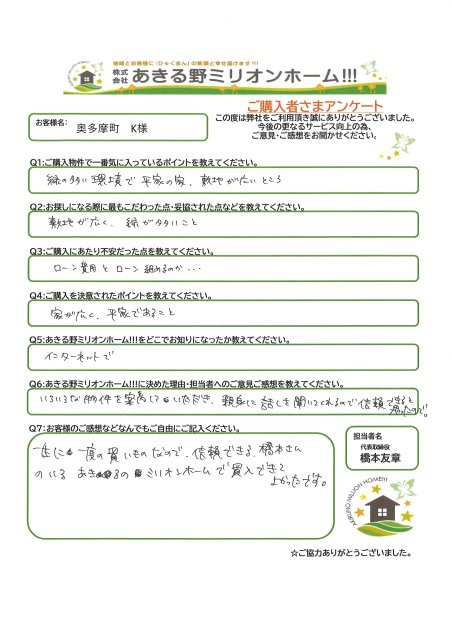 地域とお客様に「ひゃくまん」の笑顔と幸せ届けます!!!
株式会社 あきる野ミリオンホーム!!!
ご購入者さまアンケート
この度は弊社をご利用頂き誠にありがとうございました。
今後の更なるサービス向上の為、
ご意見・ご感想をお聞かせください。
お客様名: 奥多摩町 K様
Q1:ご購入物件で一番気に入っているポイントを教えてください。
緑の多い環境で平家の家、敷地が広いところ
Q2:お探しになる際に最もこだわった点・妥協された点などを教えてください。
敷地が広く、緑が多いこと
Q3:ご購入にあたり不安だった点を教えてください。
ローン費用とローン組めるのか...
Q4:ご購入を決意されたポイントを教えてください。
家が広く、平家であること
Q5:あきる野ミリオンホーム!!!をどこでお知りになったか教えてください。
インターネットで
Q6:あきる野ミリオンホーム!!!に決めた理由・担当者へのご意見ご感想を教えてください。
いろいろな物件を案内していただき、親身に話しを聞いてくれるので信頼できると
思ったので。
Q7:お客様のご感想などなんでもご自由にご記入ください。
一生に一度の買いものなので、信頼できる、橋本さん
のいる あきるの ミリオンホームで買入できて
よかったです。
担当者名
代表取締役
橋本友章
AKIRUNO MILLION HOME!!!
☆ご協力ありがとうございました。